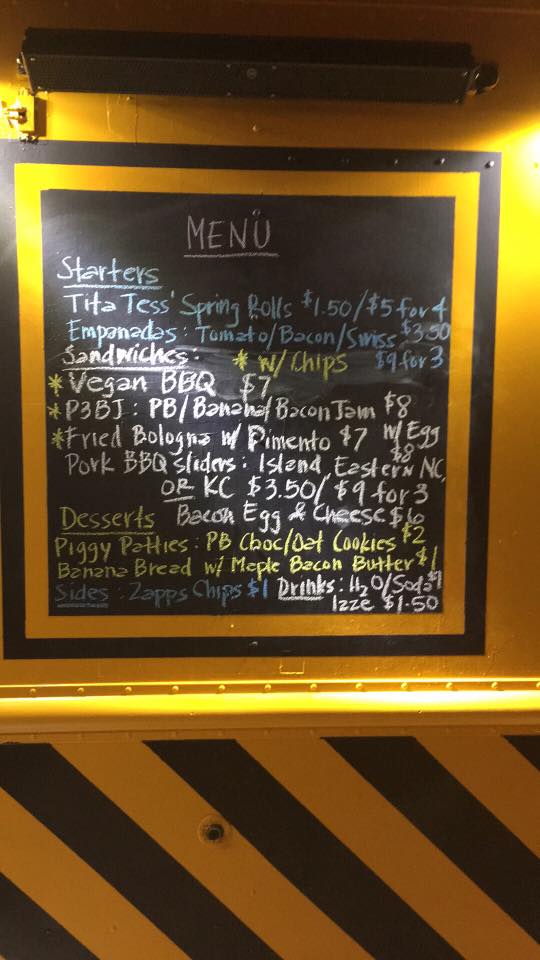 MENU
Starters
Tita Tess' Spring Rolls $1.50/$5 for 4
Empanadas: Tomato/Bacon/Swiss $3.50
Sandwiches: * w/ Chips $9 for 3
*Vegan BBQ $7
*P3BJ: PB/Banana/Bacon Jam $8
*Fried Bologna w/ Pimento $7 w/ Egg $8
Pork BBQ sliders: Island Eastern NC,
OR KC $3.50/$9 for 3
Desserts Bacon Egg & Cheese $6
Piggy Patties: PB Choc/Oat Cookies $2
Banana Bread w/ Maple Bacon Butter $1
Sides: Zapps Chips $1 Drinks: H2O/Soda $1
Izze $1.50